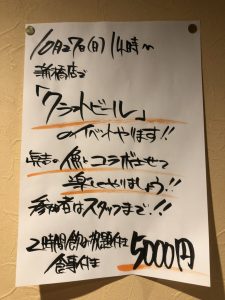 10月27日(日)14時〜
新橋店で
「クラフトビール」
のイベントやります!!
魚とコラボさせて
楽しくやりましょう!!
参加者はスタッフまで!!!
2時間飲み放題付き
食事付き 5000円